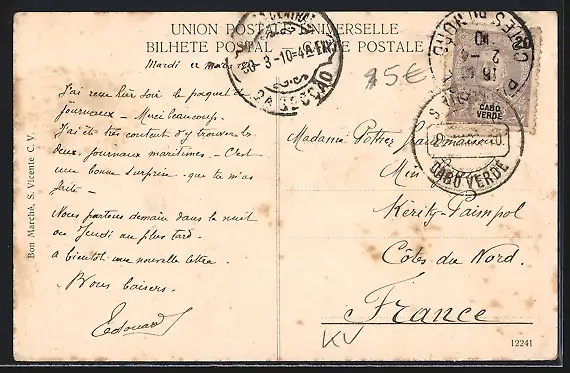 UNION POSTALE UNIVERSELLE
BILHETE POSTAL CARTE POSTALE
Mardi 22 mars
J'ai reçu hier soir le paquet de
journaux - Merci beaucoup.
J'ai été très content d'y trouver les
deux journaux maritimes - C'est
une bonne surprise que tu m'as
faite -
Nous partons demain dans la nuit
ou Jeudi au plus tard -
à bientôt une nouvelle lettre.
Bons baisers.
Edouard
Bon Marché, S. Vicente C. V.
CENTRAL
30-3-10-4
2A SECCAO
15€
CABO
VERDE
CABO VERDE
Madame
Kérity-Paimpol
Côtes du Nord.
France
KV
12241